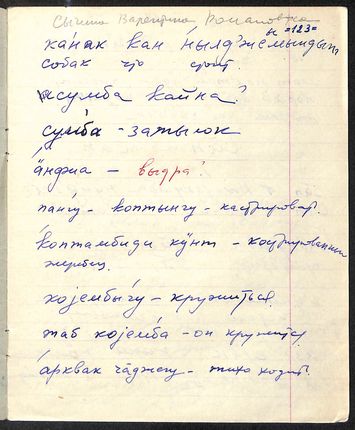 Сычина Валентина Романовна
н =123=
ка́нак кан ны́лджемындыт
собак что стоит.
ксумба кайна?
су́мба - затылок
а́нджа - выдра?
па́нгу - коптынгу - кастрироват.
ко́птамбиди кӱнт - кастрированный
жеребец.
коjембы́гу - кружиться.
таб коjе́мба - он кружится
а́рквак ча̄джегу - тихо ходит.